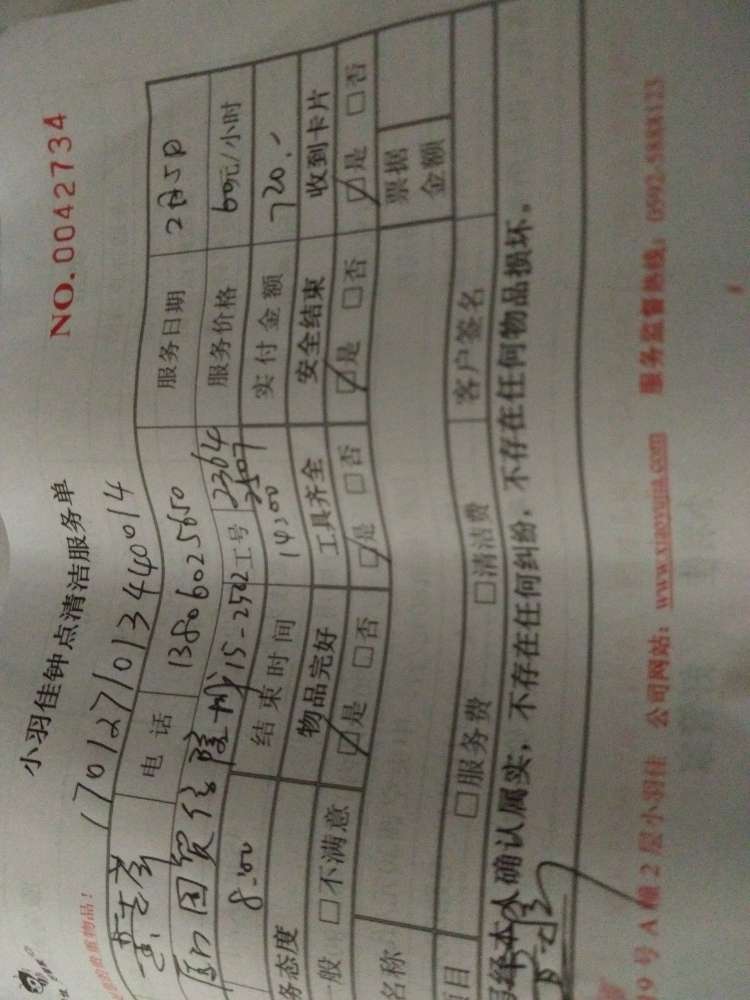 小羽佳钟点清洁服务单
NO.0042734
的贵重物品！
1701271013440014
电话 13806025650 服务日期 2月5日
国贸信隆城15-2502 工号 2364 2507 服务价格 60元/小时
8:00 结束时间 14:00 实付金额 720.-
务态度 物品完好 工具齐全 安全结束 收到卡片
般 □不满意 ☑是 □否 ☑是 □否 ☑是 □否 ☑是 □否
名称 票据金额
项目 □服务费 □清洁费 客户签名
本人确认属实，不存在任何纠纷，不存在任何物品损坏。
9号A幢2层小羽佳 公司网站：www.xiaoyujia.com 服务监督热线：0592-5888123